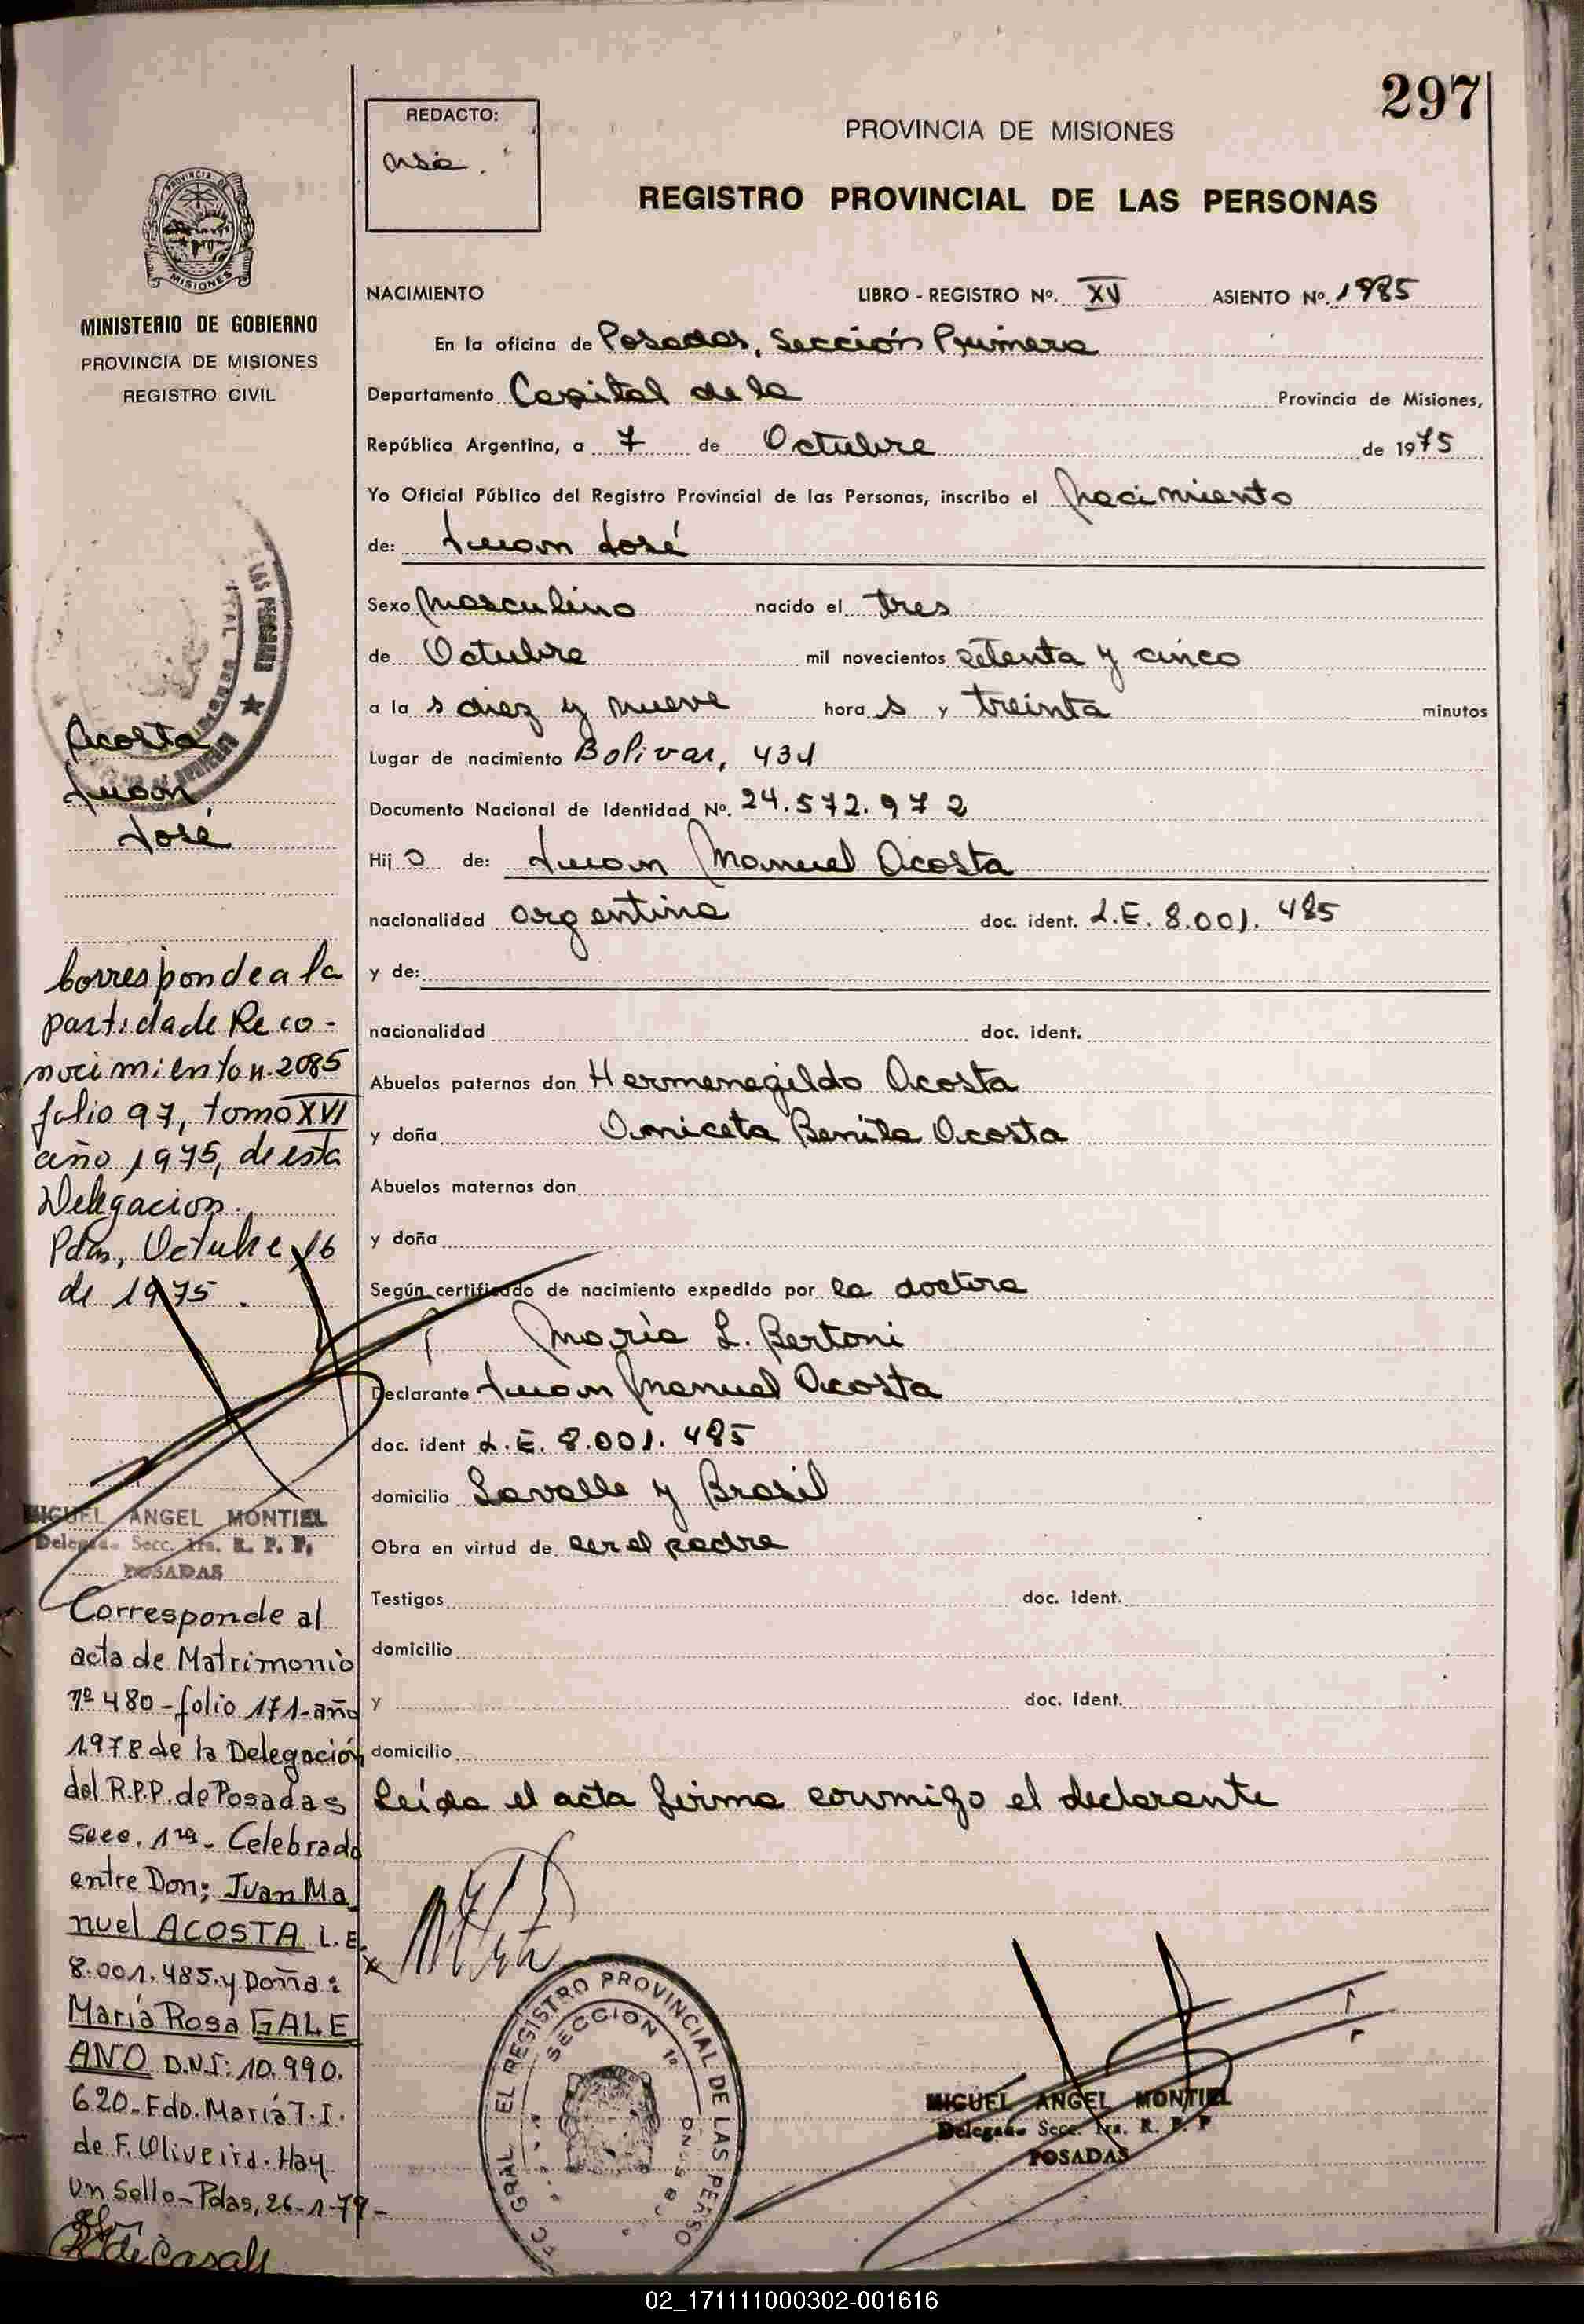 297
REDACTO:
PROVINCIA DE MISIONES
REGISTRO PROVINCIAL DE LAS PERSONAS
PROVINCIA DE
MISIONES
MINISTERIO DE GOBIERNO
PROVINCIA DE MISIONES
REGISTRO CIVIL
NACIMIENTO LIBRO - REGISTRO Nº. XV ASIENTO Nº. 1985
En la oficina de Posadas, Sección Primera
Departamento Capital de la Provincia de Misiones,
República Argentina, a 7 de Octubre de 1975
Yo Oficial Público del Registro Provincial de las Personas, inscribo el Nacimiento
de: Juan José
Sexo Masculino nacido el tres
de Octubre mil novecientos setenta y cinco
a la s diez y nueve hora s y treinta minutos
Lugar de nacimiento Bolivar, 434
Documento Nacional de Identidad Nº. 24.572.972
Hij o de: Juan Manuel Acosta
nacionalidad argentina doc. ident. L.E. 8.001.485
y de:
nacionalidad doc. ident.
Abuelos paternos don Hermenegildo Acosta
y doña Aniceta Benita Acosta
Abuelos maternos don
y doña
Según certificado de nacimiento expedido por la doctora
María L. Bertoni
Declarante Juan Manuel Acosta
doc. ident L.E. 8.001.485
domicilio Lavalle y Brasil
Obra en virtud de ser el padre
Testigos doc. ident.
domicilio
y doc. ident.
domicilio
Leída el acta firma conmigo el declarante
GRAL EL REGISTRO PROVINCIAL DE LAS PERSO
SECCION 1º
MIGUEL ANGEL MONTIEL
Delegado Secc. 1ra. R. P. P
POSADAS
LAS PERSONAS
Acosta
Juan
José
Corresponde a la
partida de Reco-
nocimiento n. 2085
folio 97, tomo XVI
año 1975, de esta
Delegacion.
Pdas, Octubre 16
de 1975.
MIGUEL ANGEL MONTIEL
Delegado Secc. 1ra. R. P. P.
POSADAS
Corresponde al
acta de Matrimonio
nº 480-folio 171-año
1978 de la Delegación
del R.P.P. de Posadas
Secc. 1ra- Celebrado
entre Don; Juan Ma
nuel ACOSTA L.E.
8.001.485. y Doña:
María Rosa GALE
ANO D.N.I: 10.990.
620-Fdo. María T. I.
de F. Oliveira. Hay
un Sello-Pdas, 26-1-79-
de Casals
02_171111000302-001616